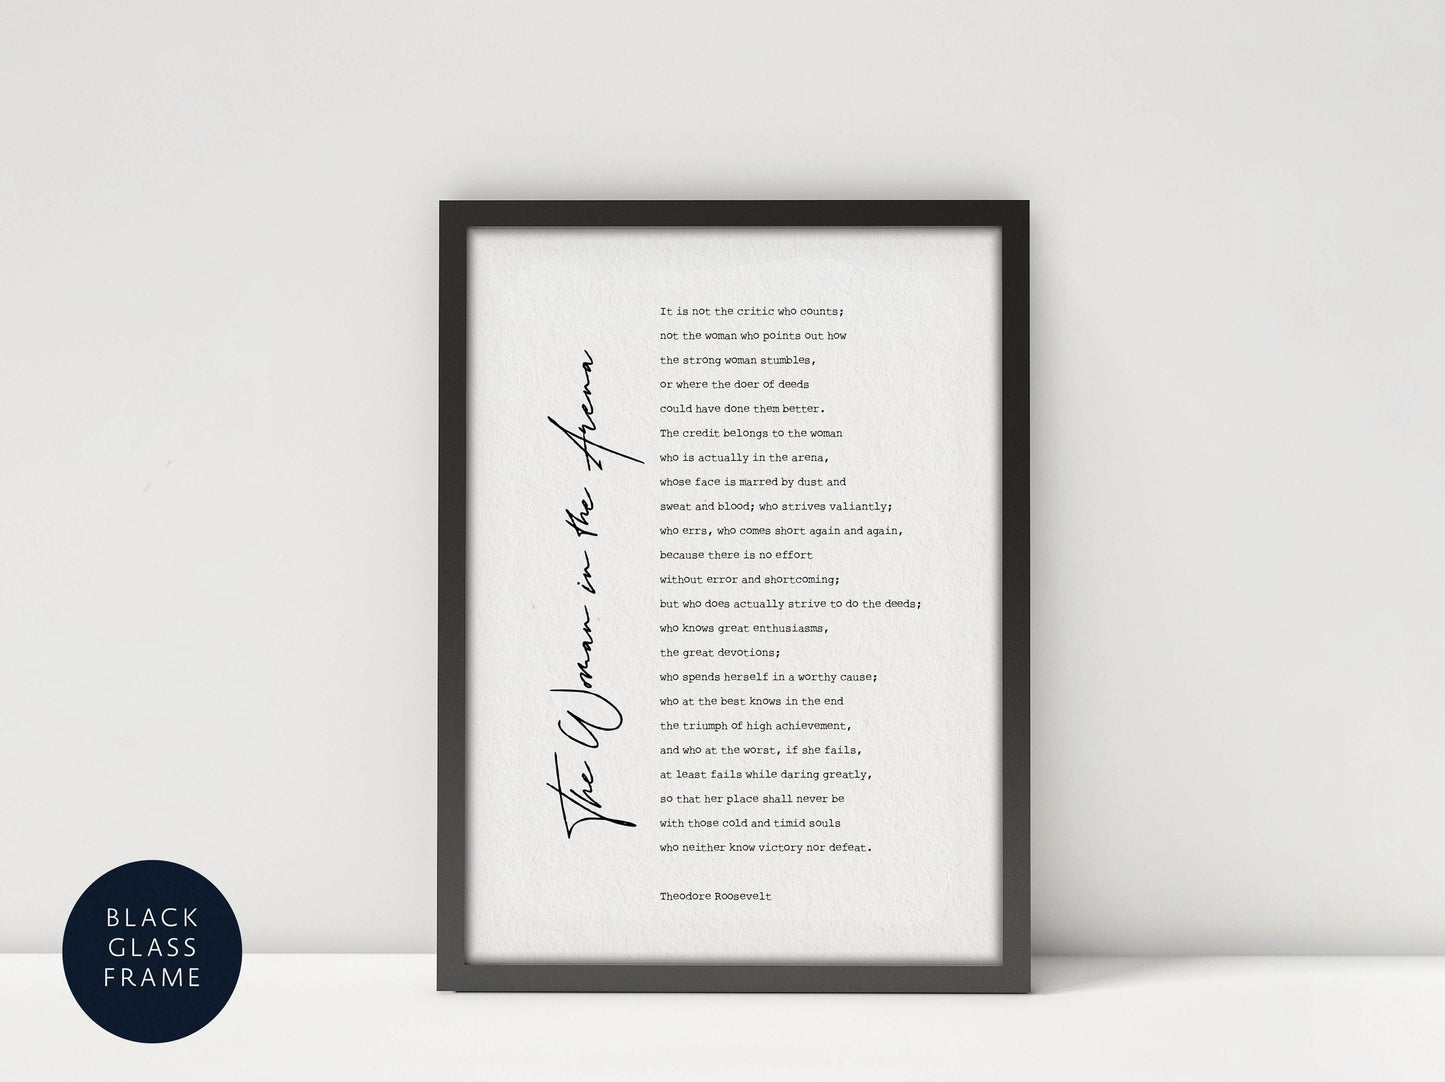 The Woman in the Arena
It is not the critic who counts;
not the woman who points out how
the strong woman stumbles,
or where the doer of deeds
could have done them better.
The credit belongs to the woman
who is actually in the arena,
whose face is marred by dust and
sweat and blood; who strives valiantly;
who errs, who comes short again and again,
because there is no effort
without error and shortcoming;
but who does actually strive to do the deeds;
who knows great enthusiasms,
the great devotions;
who spends herself in a worthy cause;
who at the best knows in the end
the triumph of high achievement,
and who at the worst, if she fails,
at least fails while daring greatly,
so that her place shall never be
with those cold and timid souls
who neither know victory nor defeat.
Theodore Roosevelt
BLACK
GLASS
FRAME